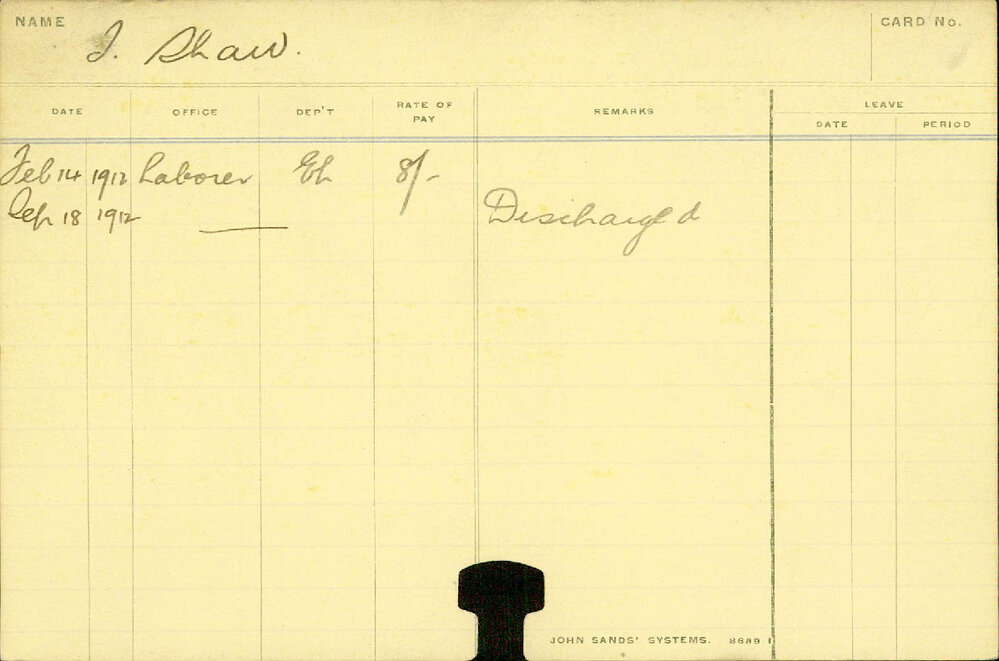 NAME J. Shaw. CARD No.
DATE OFFICE DEP'T RATE OF PAY REMARKS LEAVE
DATE PERIOD
Feb 14 1912 Laborer 8/-
Sep 18 1912 Discharged
JOHN SANDS' SYSTEMS. 8689 1